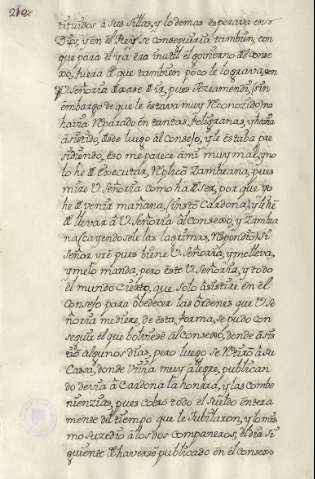 210
tituidos à sus sillas, y lo demas esperava en
Dios, y en el Rey se conseguiria tambien, con
que para el ya era inutil el govierno del Conse
jo, fuera de que tambien poco le lograra, en
V. Señoria que se ir, pues seriamente, sin
embargo de que le estava muy reconozido, no
havia reparado en tantas feligranas, y havia
asistido, desde luego al Consejo, y le estaba pre
sidiendo, eso me parece ámi muy mal, y no
lo he de executar, replicò Zambrana, pues
mire V. Señoria como ha de ser, por que yo
he de venir mañana, (insto Cardona,) y le he
de llevar à V. Señoria al Consexo, y Zambra
na (cayendosele las lagrimas, respondio) Si
señor yrè pues viene V. Señoria, y me lleva,
y me lo manda, pero èste V. Señoria, y todo
el mundo cierto, que solo àsistire en el
Consejo para òbedecer las òrdenes que V. Se
ñoria me diere, de esta forma, se pudo con
seguir el que bolviese al Consexo, donde àsis
tiò algunos dias, pero luego se retirò à su
Cassa, donde vivia muy àlegre, publican
do devia à Cardona la honrra, y las combe
nienzias, pues cobrò todo el sueldo entera
mente del tiempo que le Jubilaron, y lo mis
mo suzedio à los dos compañeros, el dia si
guiente de haverse publicado en el consexo